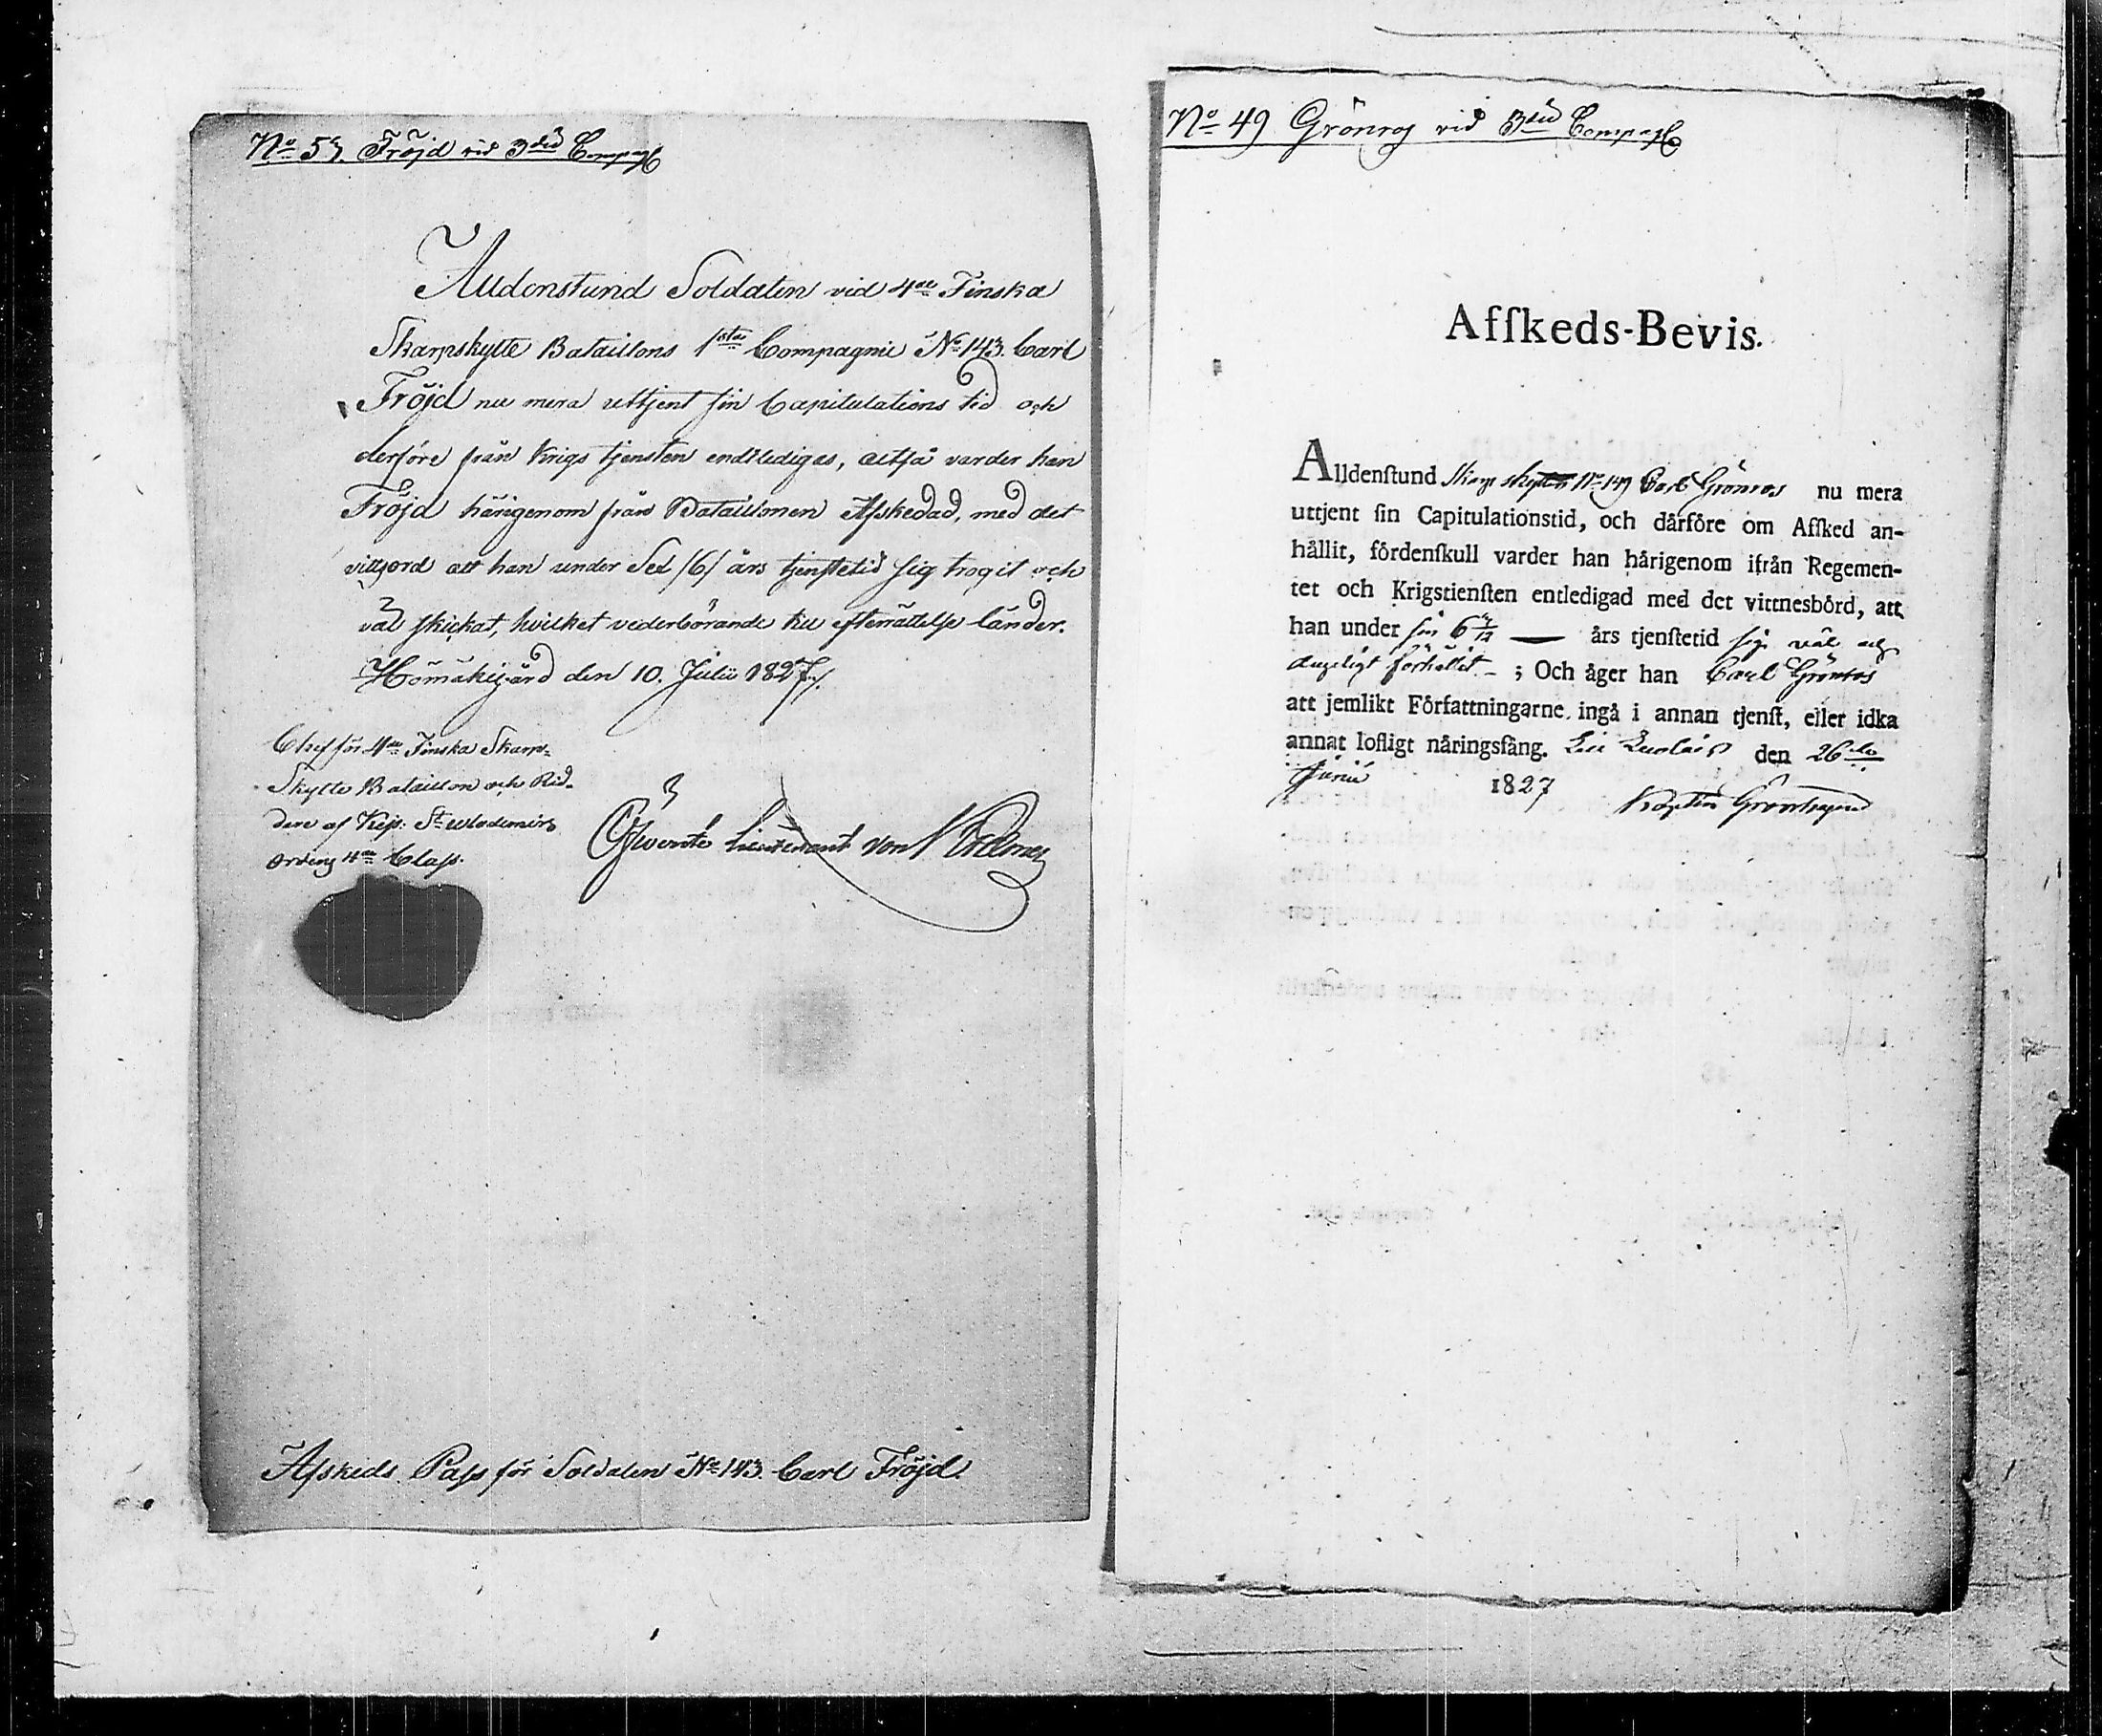 No 57. Fröjd vid 3die Compagt
Alldenstund Soldaten vid 4de Finska
Skarpskytte Bataillons 1sta Compagnie No 143. Carl
Fröjd nu mera uttjent sin Capitulations tid och
derföre från Krigs tjensten endtlediges, altså varder han
Fröjd härigenom från Bataillonen Afskedad, med det
vittsord att han under Sex /6/ års tjenstetid sig trogit och
väl skickat, hvilket vederbörande till efterrättelse länder.
den 10. Julii 1827.
Chef för 4de Finska Skarp-
Skytte Bataillon och Rid-
dare af Kejs: St Wlodimirs
Ordens 4de Class.
Öfwerste Lieutenant von
Afskeds Pass för Soldaten No 143. Carl Fröjd.
No 49 Grönros vid 3die Compagt
Afſkeds-Bevis.
Alldenſtund Skarpskytten No 149 Carl Grönros nu mera
uttjent ſin Capitulationstid, och dårföre om Afſked an-
hållit, fördenſkull varder han hårigenom ifrån Regemen-
tet och Krigstienſten entledigad med det vittnesbörd, att
han under sin 6 års tjenſtetid sig väl och
dugeligt förhållit ; Och åger han Carl Grönros
att jemlikt Författningarne ingå i annan tjenſt, eller idka
annat lofligt näringsfång. den 26
Junii 1827